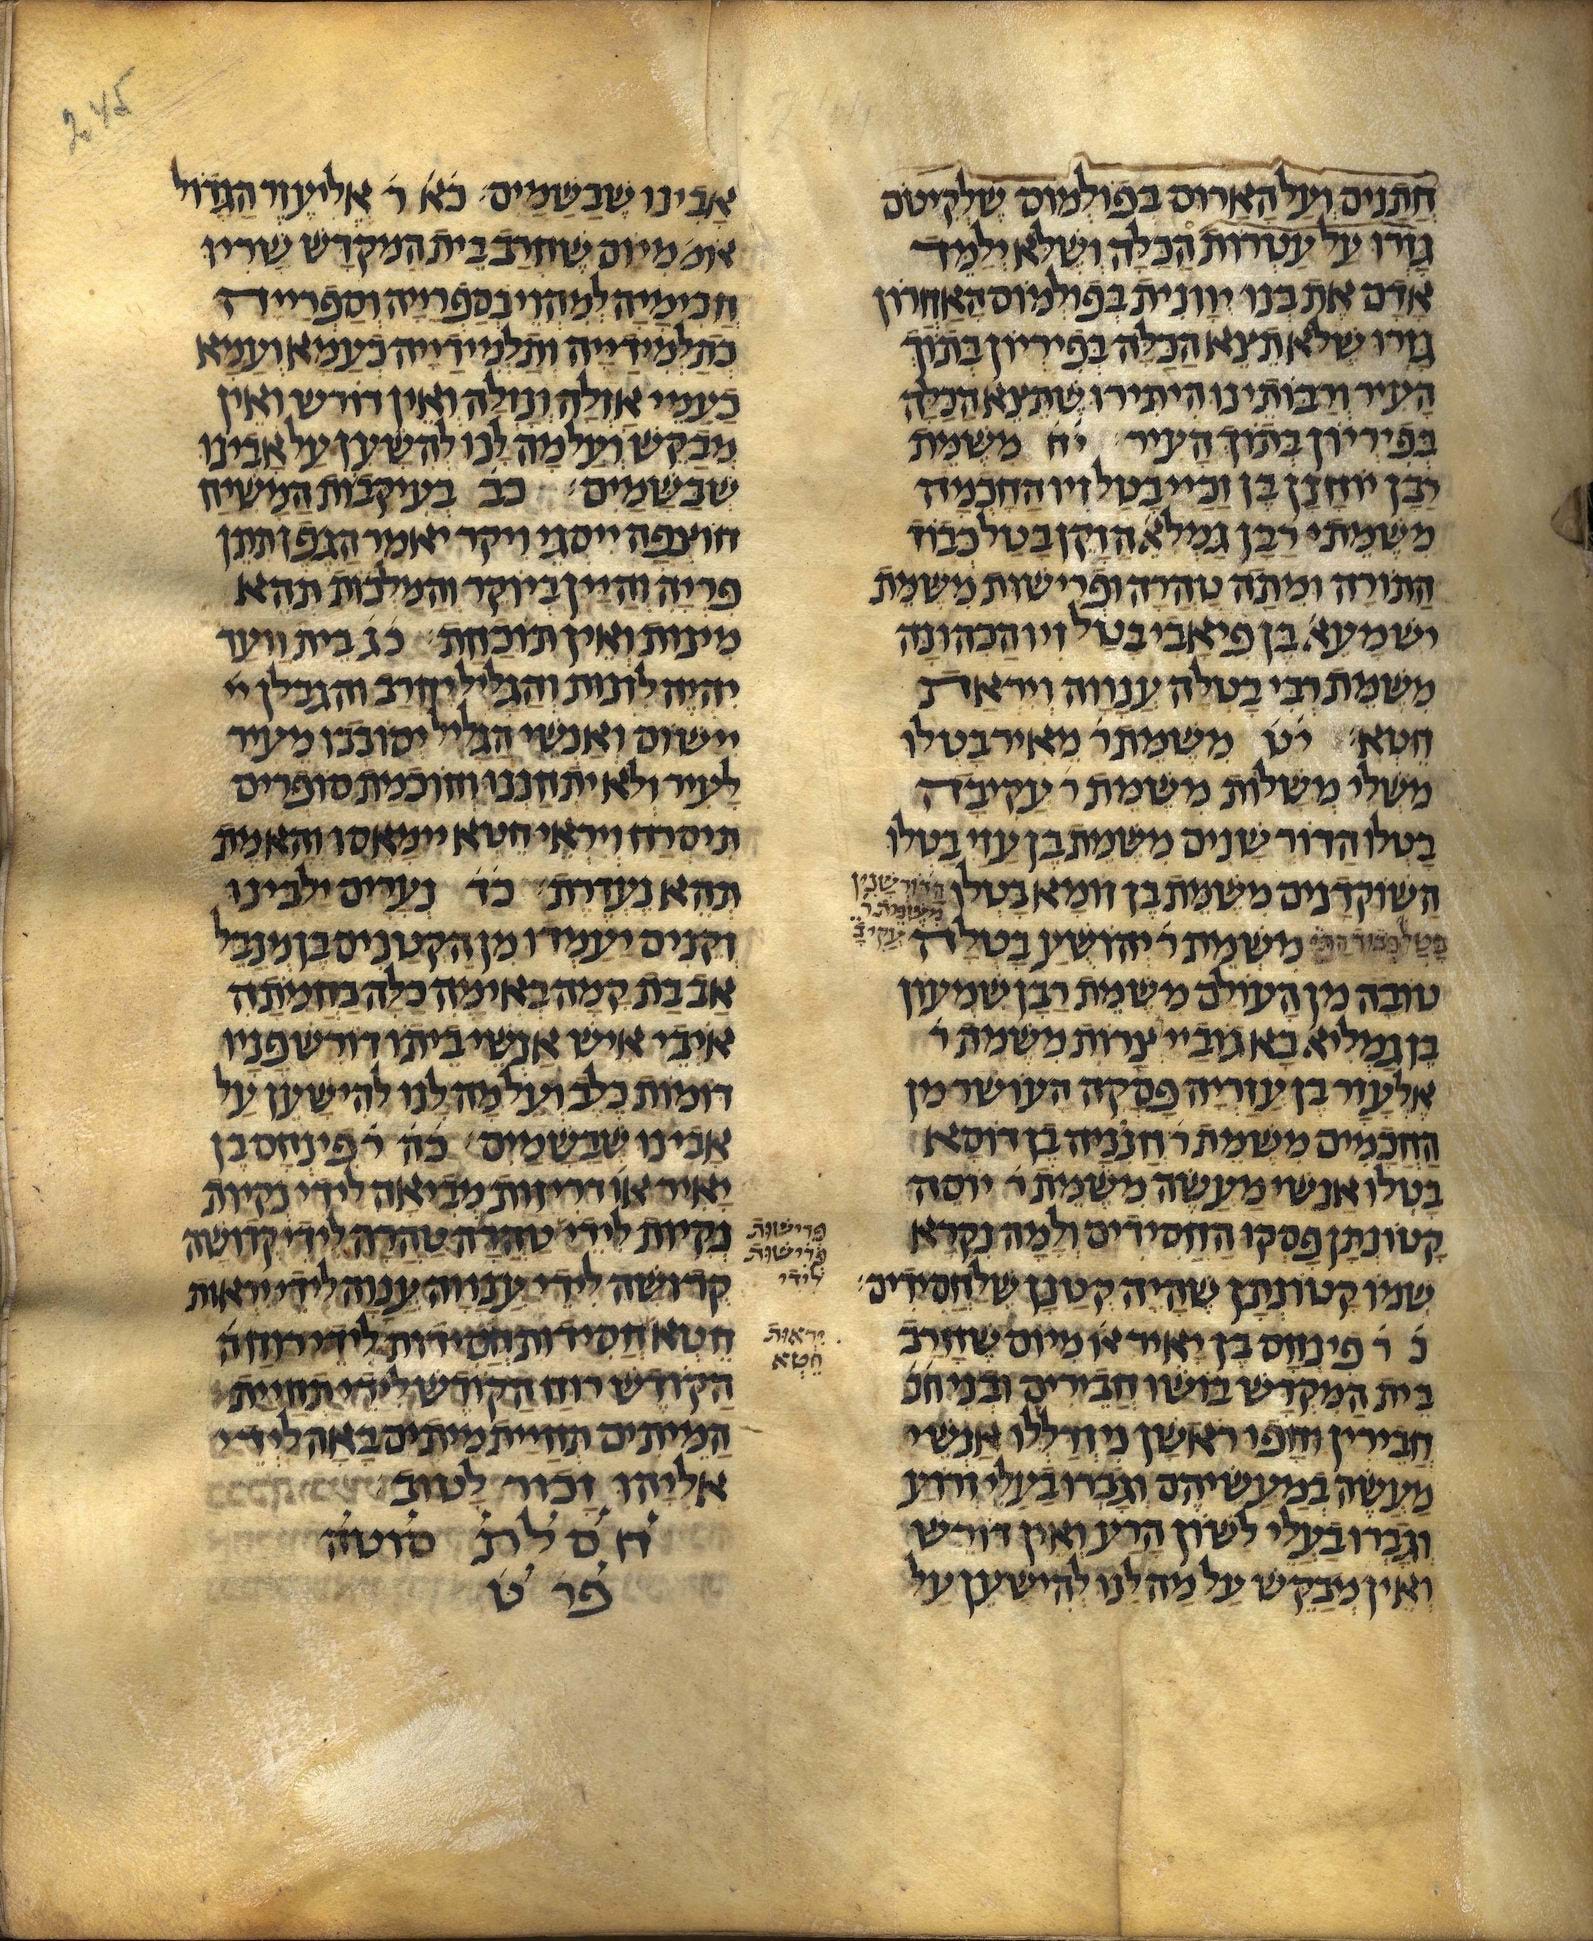 חתנים ועל הארוס בפולמוס שלקיטס
גזרו על עטרות הכלה ושלא ילמד
אדם את בנו יוונית בפולמוס האחרון
גזרו שלא תצא הכלה בפיריון בתוך
העיר ורבותינו היתירו שתצא הכלה
בפיריון בתוך העיר יח משמת
רבן יוחנן בן זכיי בטל זיו החכמה
משמתי רבן גמליא הזקן בטל כבוד
התורה ומתה טהרה ופרישות משמת
ישמעא בן פיאבי בטל זיו הכהונה
משמת רבי בטלה ענווה ויראת
חטא יט משמת ר מאיר בטלו
משלי משלות משמת ר עקיבה
בטלו הדור שנים משמת בן עזי בטלו
השוקדנים משמת בן זומא בטלו הדורשנין
משמית ר
עקיבה
בטל כבוד התו משמת ר יהושע בטלה
טובה מן העולם משמת רבן שמעון
בן גמליא בא גוביי צרות משמת ר
אלעזר בן עזריה פסקה העושר מן
החכמים משמת ר חנניה בן דוסא
בטלו אנשי מעשה משמת ר יוסה
קטונתן פסקו החסידים ולמה נקרא
שמו קטונתן שהיה קטנן שלחסידים
כ ר פינחס בן יאיר או מיום שחרב
בית המקדש בושו חבירים ובני חר
חבירין וחפו ראשן נידללו אנשי
מעשה במעשיהם וגברו בעלי זרוע
וגברו בעלי לשון הרע ואין דורש
ואין מבקש על מה לנו להישען על
אבינו שבשמים כא ר אליעזר הגדול
אום מיום שחרב בית המקדש שריו
חכימיה למהוי בספרייה וספרייה
כתלמידייה ותלמידייה כעמא ועמא
כעמי אזלה ונולה ואין דורש ואין
מבקש ועל מה לנו להשען על אבינו
שבשמים כב בעיקבות המשיח
חוצפה ייסגי ויקר יאמר הגפן תיתן
פריה והיין ביוקר והמלכות תהא
מינות ואין תוכחת כג בית וועד
יהיה לזנות והגליל יחרב והגבלן יי
יישום ואנשי הגליל יסובבו מעיר
לעיר ולא יתחננו וחוכמת סופרים
תיסרח ויראי חטא יימאסו והאמת
תהא נעדרת כד נערים ילבינו
זקנים יעמדו מן הקטנים בן מנבל
אב בת קמה באימה כלה בחמתה
איבי איש אנשי ביתו דורש פניו
דומות כלב ועל מה לנו להישען על
אבינו שבשמים כה ר פינחס בן
יאיר או דריזות מביאה לידי נקיות
נקיות לידי טהרה טהרה לידי קדושה
פרישות
פרישות
לידי
קדושה לידי ענווה ענוה לידי יראות
חטא חסידות חסידות לידי רוח ה
יראות
חטא
הקודש רוח הקודש לידי תחיית
המיתים תחיית מיתים באה לידי
אליהו זכור לטוב
ח ס ל ת סוטה
פר ט
245